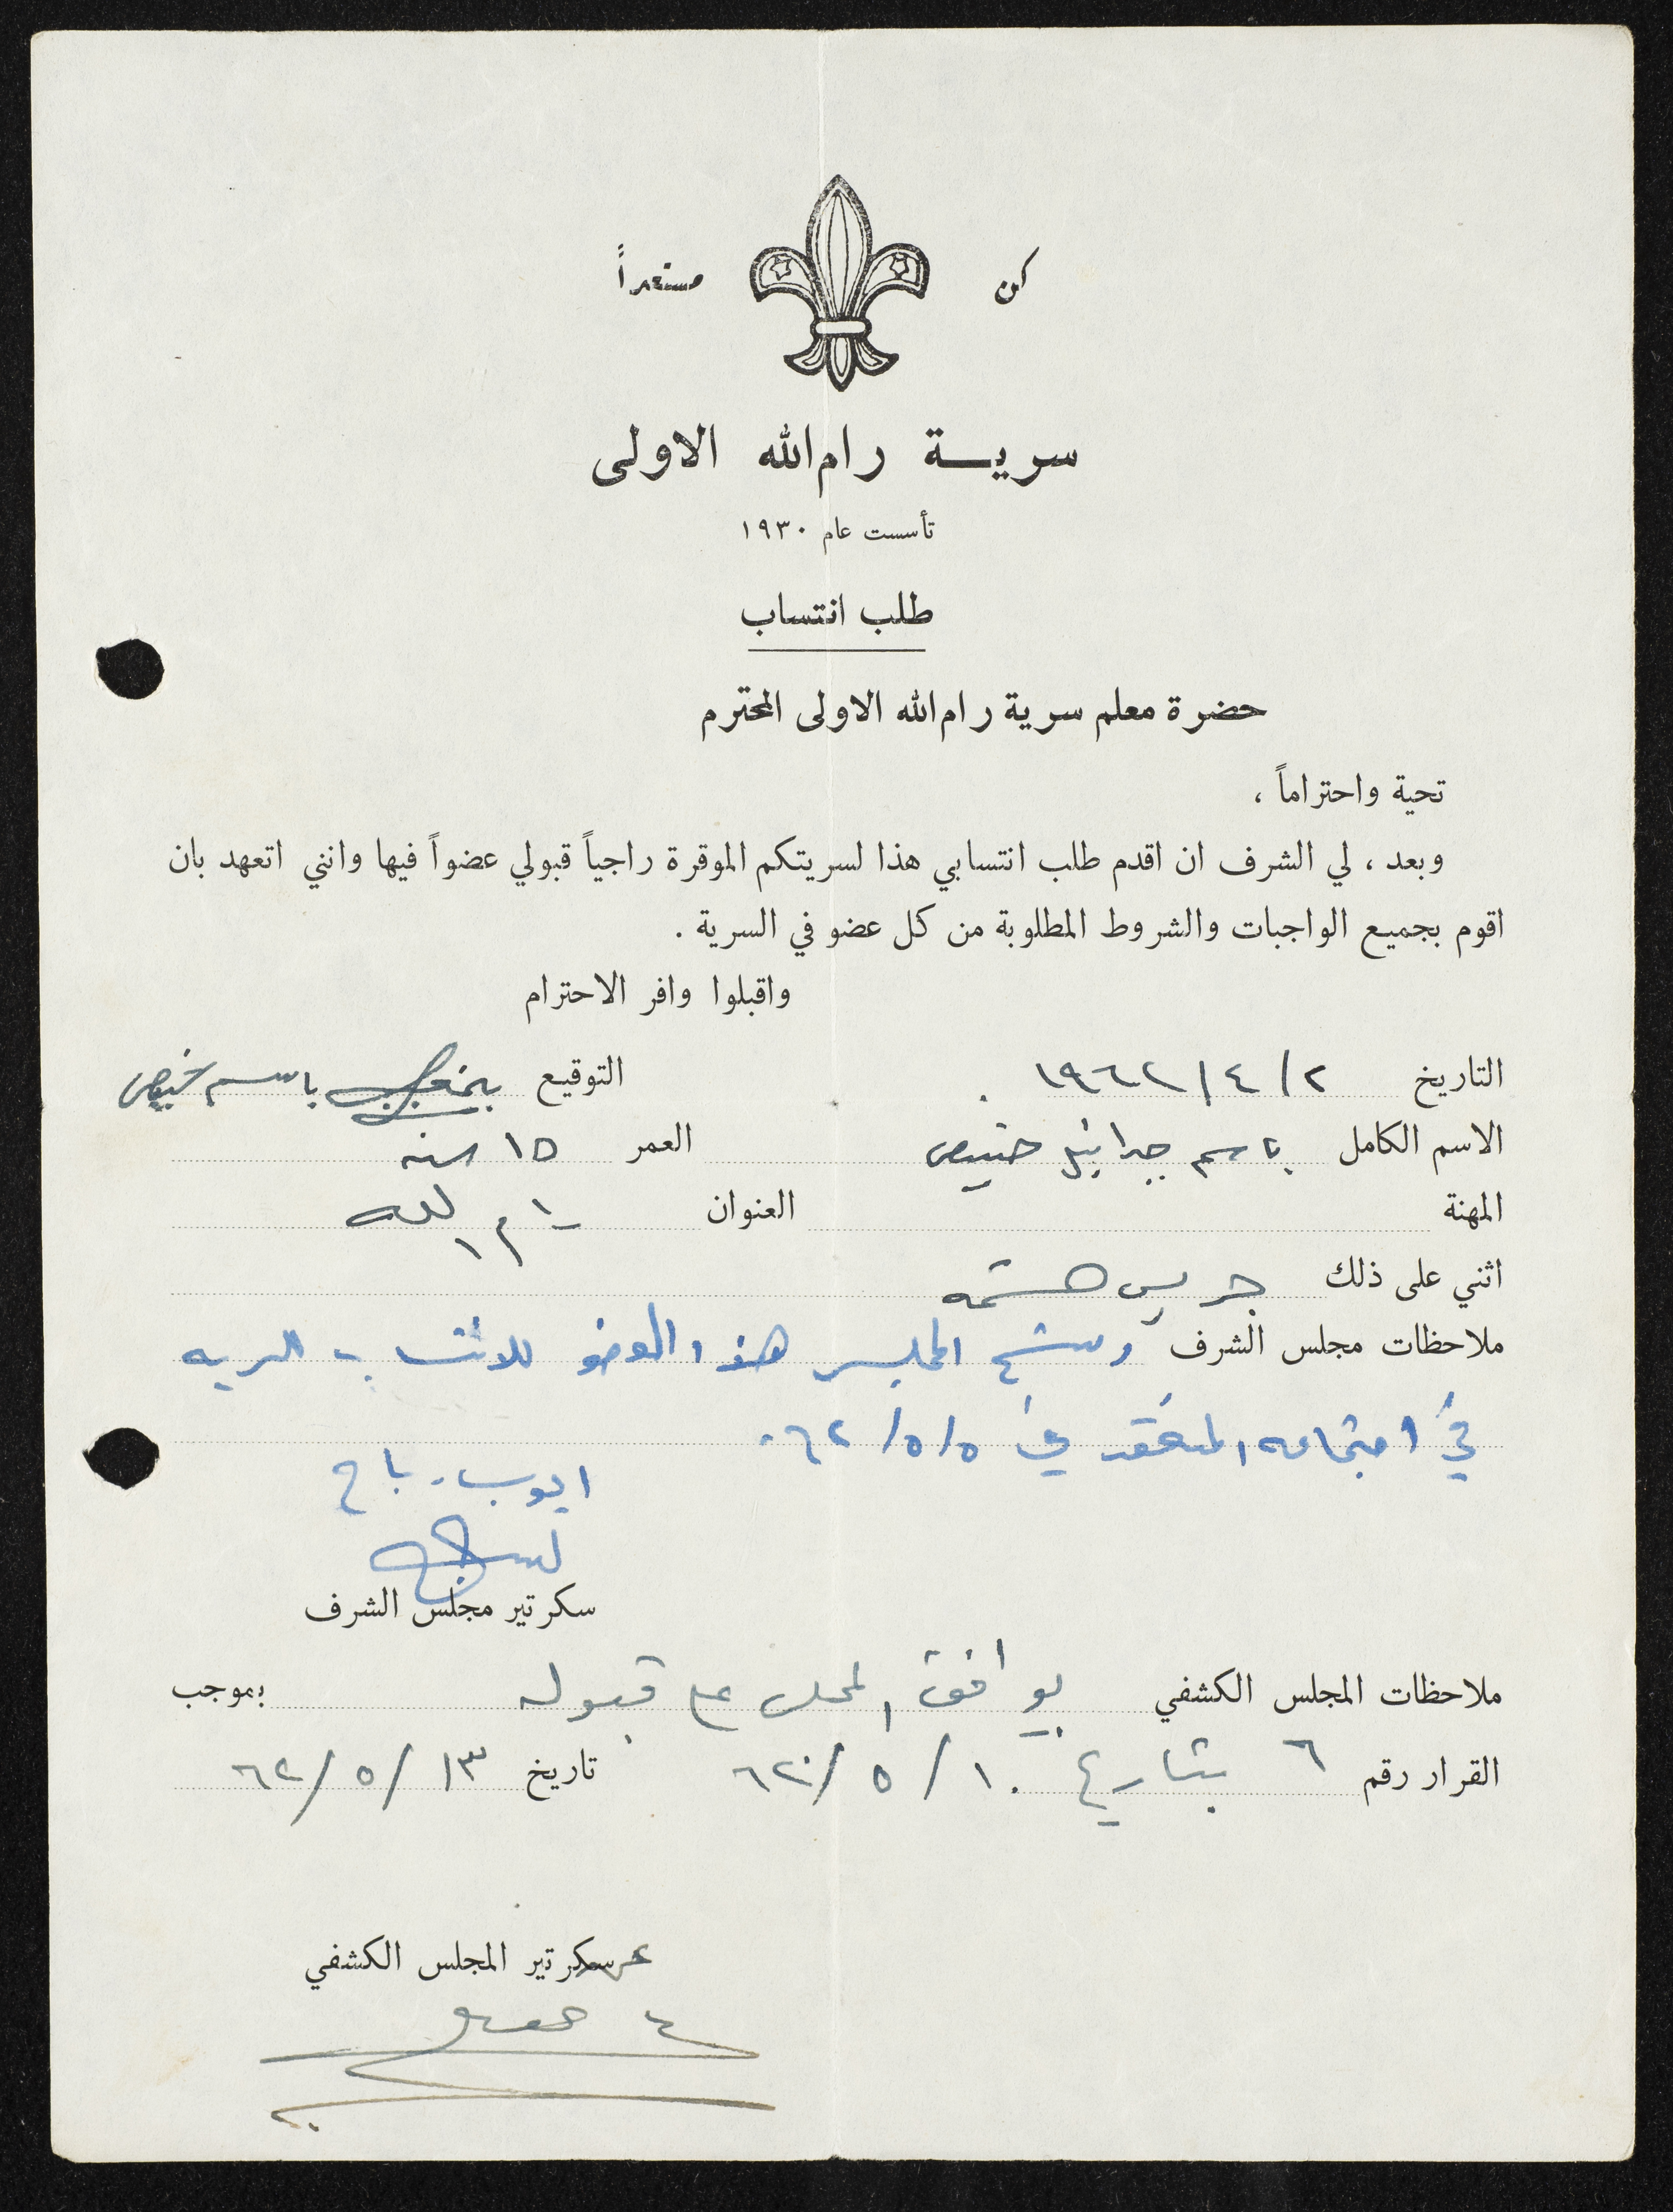 كن مستعداً
سرية رام الله الاولى
تأسست عام ١٩٣٠
طلب انتساب
حضرة معلم سرية رام الله الاولى المحترم
تحية واحتراماً ،
وبعد ، لي الشرف ان اقدم طلب انتسابي هذا لسريتكم الموقرة راجياً قبولي عضواً فيها وانني اتعهد بان
اقوم بجميع الواجبات والشروط المطلوبة من كل عضو في السرية .
واقبلوا وافر الاحترام
التاريخ ٢/٤/١٩٦٢ . التوقيع باسم
الاسم الكامل باسم جبرائيل العمر ١٥ سنه
المهنة العنوان رام الله
اثني على ذلك جريس
ملاحظات مجلس الشرف رشح المجلس هذا العضو للانتساب للسريه
في اجتماعه المنعقد في ٥/٥/٦٢.
ايوب رباح
سكرتير مجلس الشرف
ملاحظات المجلس الكشفي يوافق المجلس على قبوله بموجب
القرار رقم ٦ بتاريخ ١٠/٥/٦٢ تاريخ ١٣/٥/٦٢
سكرتير المجلس الكشفي